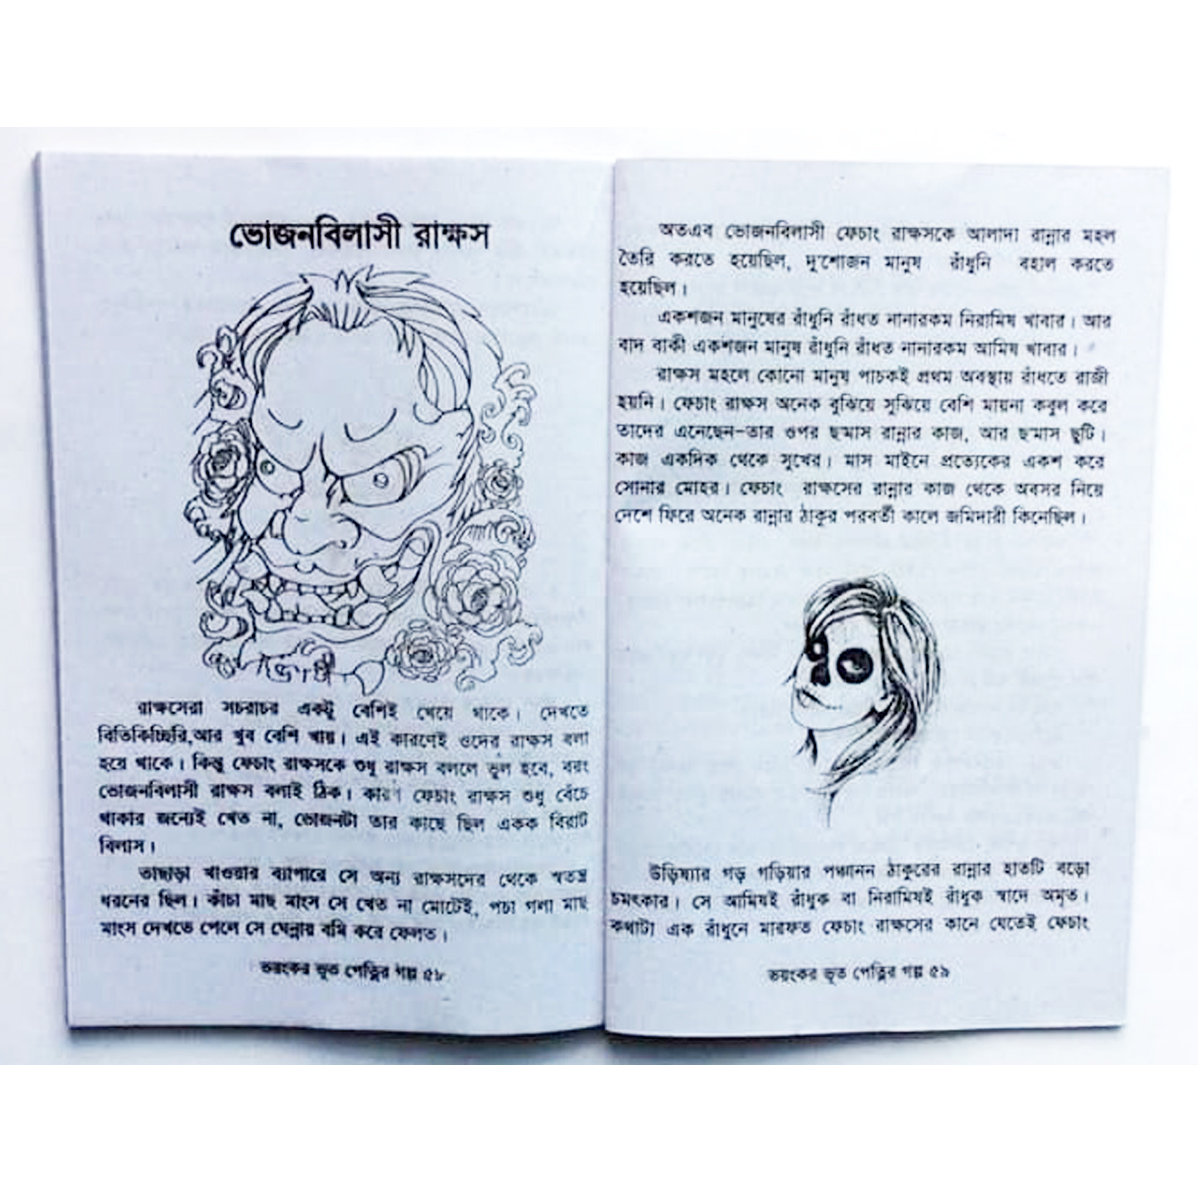 ভোজনবিলাসী রাক্ষস
রাক্ষসেরা সচরাচর একটু বেশিই খেয়ে থাকে। দেখতে
বিতিকিচ্ছিরি,আর খুব বেশি খায়। এই কারণেই ওদের রাক্ষস বলা
হয়ে থাকে। কিন্তু ফেচাং রাক্ষসকে শুধু রাক্ষস বললে ভুল হবে, বরং
ভোজনবিলাসী রাক্ষস বলাই ঠিক। কারণ ফেচাং রাক্ষস শুধু বেঁচে
থাকার জন্যেই খেত না, ভোজনটা তার কাছে ছিল একক বিরাট
বিলাস।
তাছাড়া খাওয়ার ব্যাপারে সে অন্য রাক্ষসদের থেকে স্বতন্ত্র
ধরনের ছিল। কাঁচা মাছ মাংস সে খেত না মোটেই, পচা গলা মাছ
মাংস দেখতে পেলে সে ঘেন্নায় বমি করে ফেলত।
ভয়ংকর ভূত পেত্নির গল্প ৫৮
অতএব ভোজনবিলাসী ফেচাং রাক্ষসকে আলাদা রান্নার মহল
তৈরি করতে হয়েছিল, দু'শোজন মানুষ রাঁধুনি বহাল করতে
হয়েছিল।
একশজন মানুষের রাঁধুনি রাঁধত নানারকম নিরামিষ খাবার। আর
বাদ বাকী একশজন মানুষ রাঁধুনি রাঁধত নানারকম আমিষ খাবার।
রাক্ষস মহলে কোনো মানুষ পাচকই প্রথম অবস্থায় রাঁধতে রাজী
হয়নি। ফেচাং রাক্ষস অনেক বুঝিয়ে সুঝিয়ে বেশি মায়না কবুল করে
তাদের এনেছেন–তার ওপর ছ'মাস রান্নার কাজ, আর ছ'মাস ছুটি।
কাজ একদিক থেকে সুখের। মাস মাইনে প্রত্যেকের একশ করে
সোনার মোহর। ফেচাং রাক্ষসের রান্নার কাজ থেকে অবসর নিয়ে
দেশে ফিরে অনেক রান্নার ঠাকুর পরবর্তী কালে জমিদারী কিনেছিল।
উড়িষ্যার গড় গড়িয়ার পঞ্চানন ঠাকুরের রান্নার হাতটি বড়ো
চমৎকার। সে আমিষই রাঁধুক বা নিরামিষই রাঁধুক স্বাদে অমৃত।
কথাটা এক রাঁধুনে মারফত ফেচাং রাক্ষসের কানে যেতেই ফেচাং
ভয়ংকর ভূত পেত্নির গল্প ৫৯